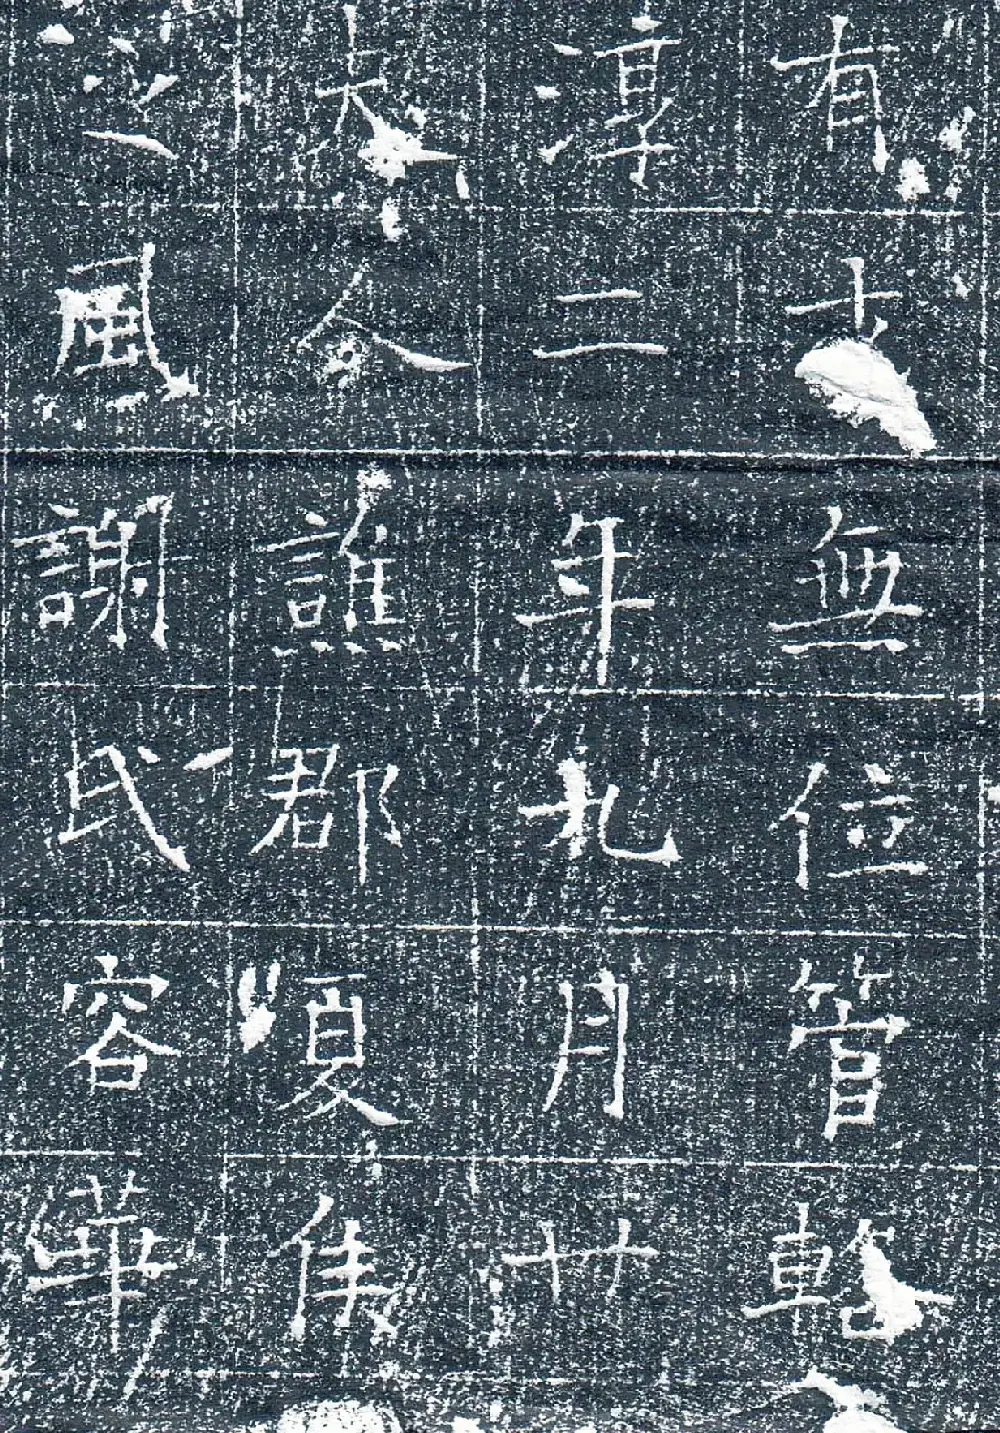 有才無位管輅
淳二年九月廿
夫人譙郡夏侯
之風謝氏容華